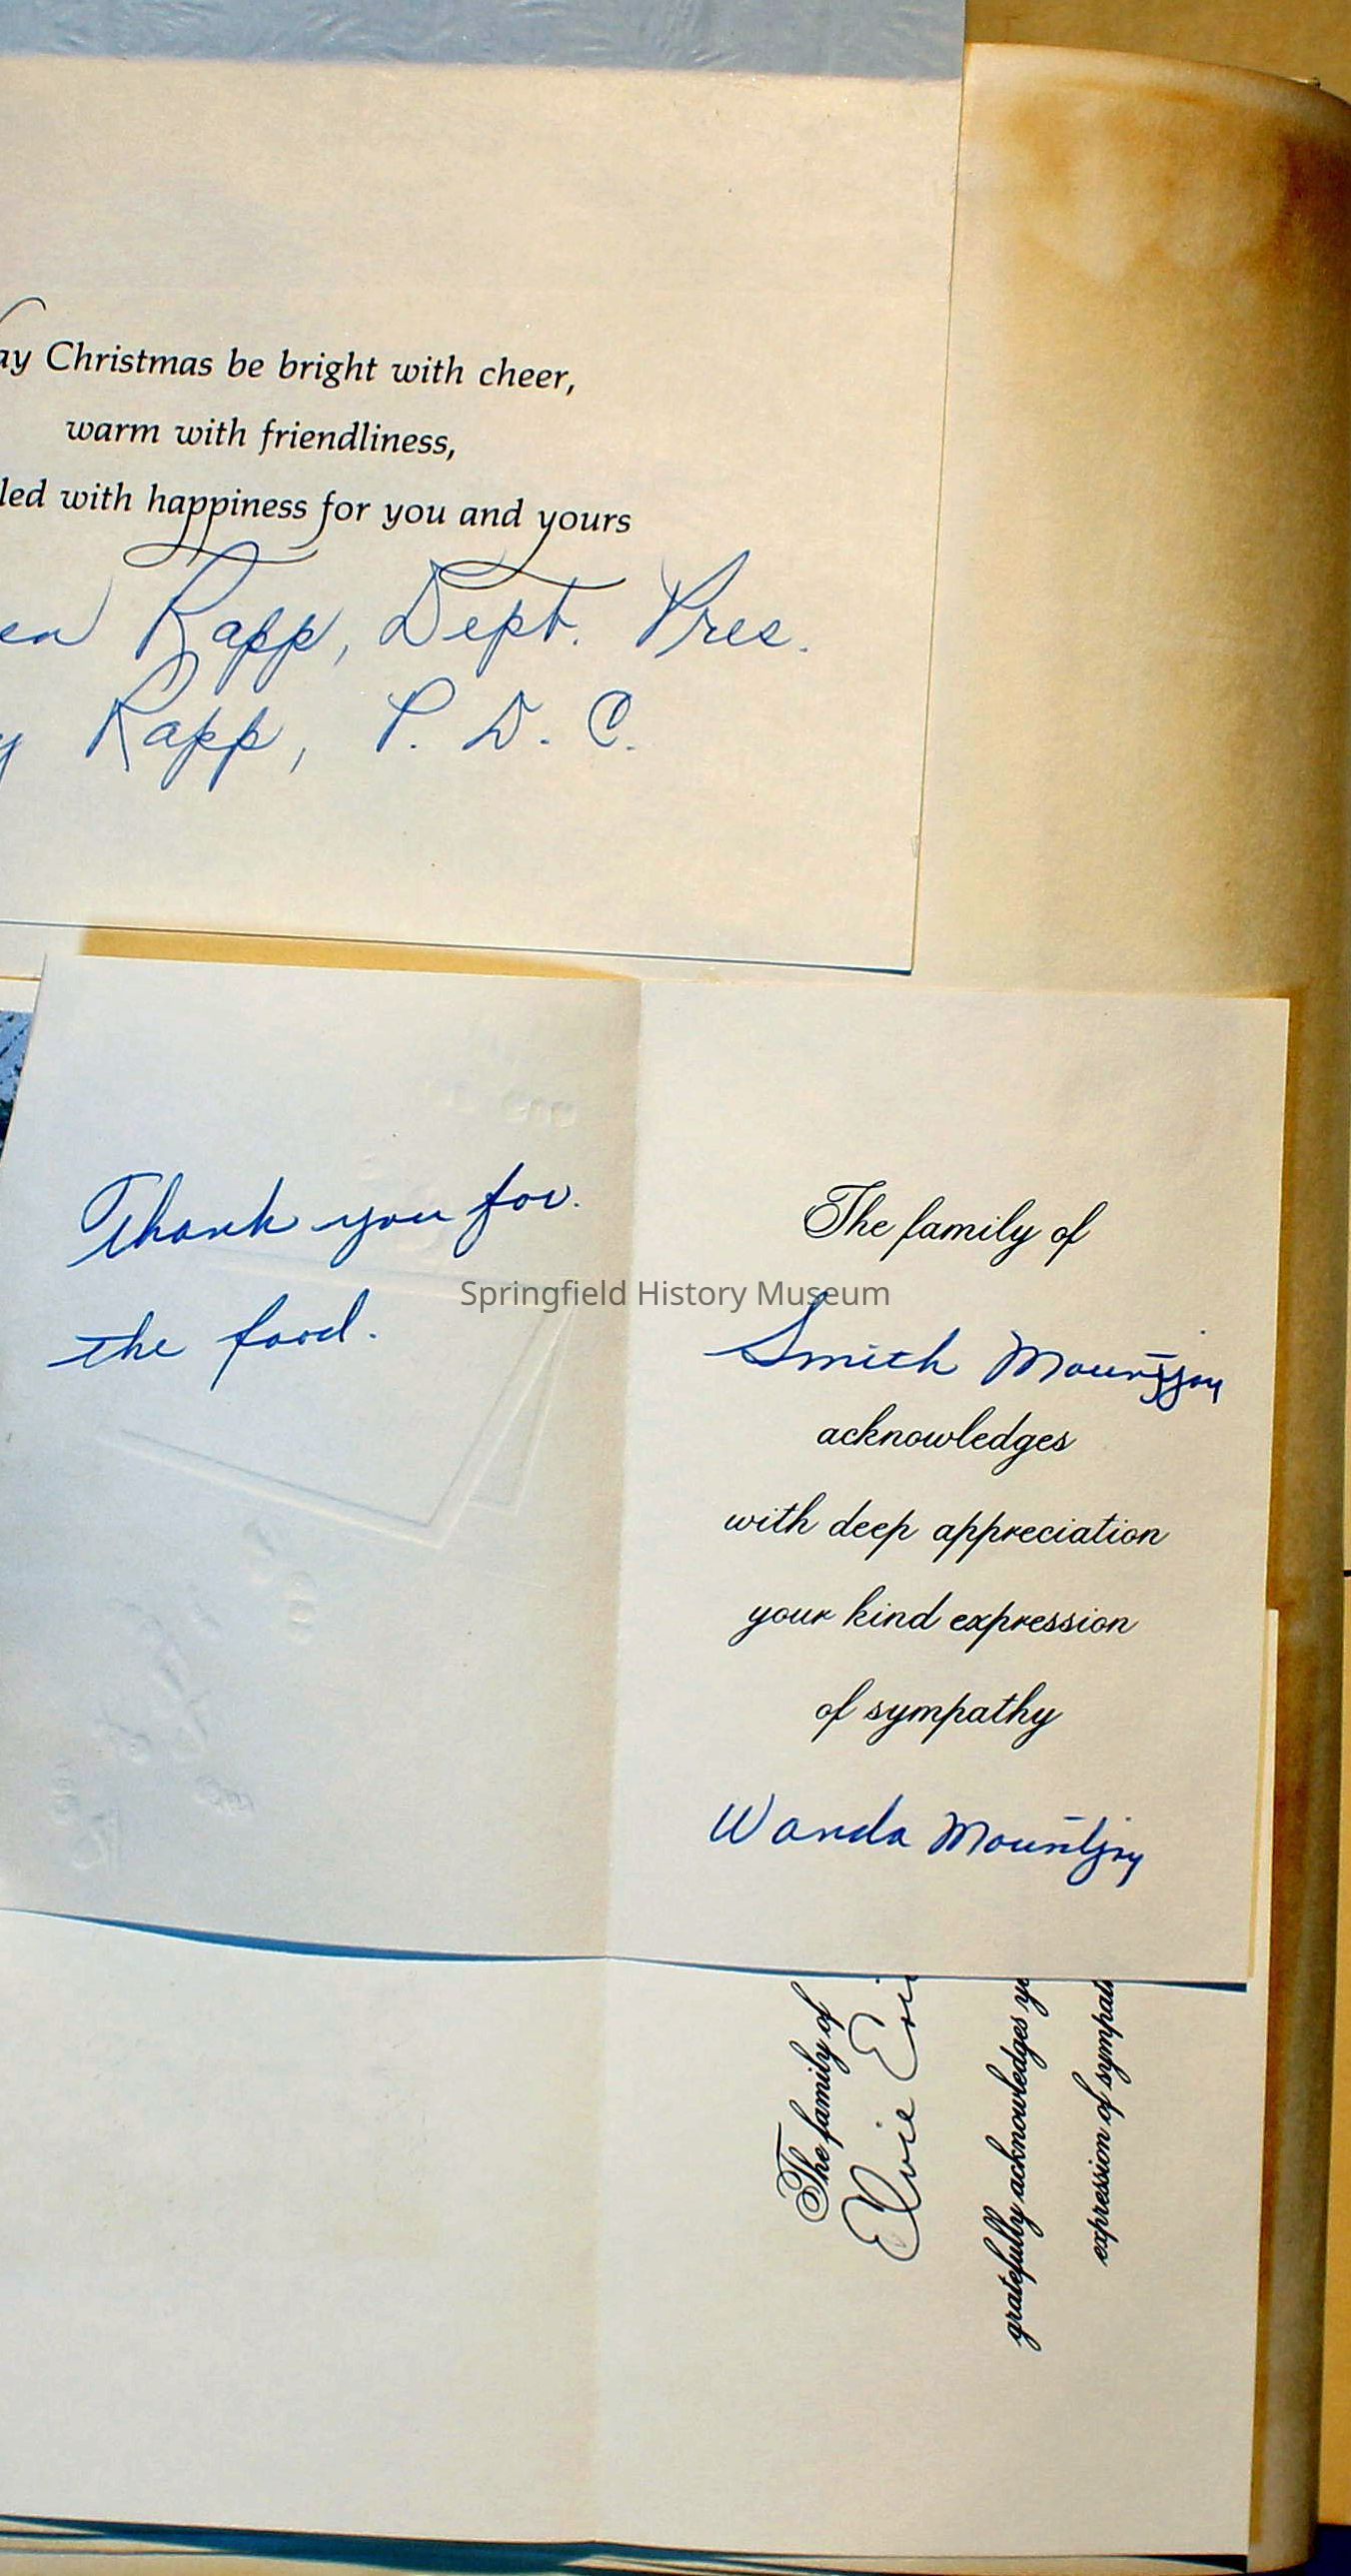 ay Christmas be bright with cheer,
warm with friendliness,
led with happiness for you and yours
en Rapp, Dept. Pres.
y Rapp, P. D. C.
Thank you for.
the food.
Springfield History Museum
The family of
Smith Mountjoy
acknowledges
with deep appreciation
your kind expression
of sympathy
Wanda Mountjoy
The family of
Elvie Eri
gratefully acknowledges y
expression of sympat